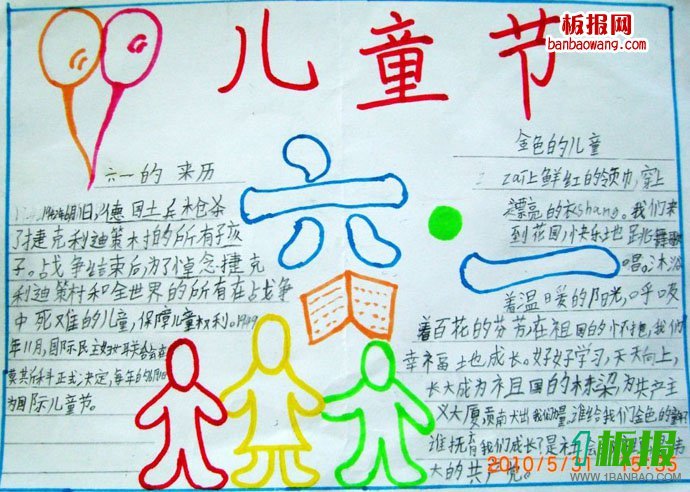 板报网
banbaowang.com
儿童节
六·一
六一的来历
1942年6月1日,德国士兵枪杀
了捷克利迪策村的所有子孩
子。战争结束后,为了悼念捷克
利迪策村和全世界的所有在战争
中死难的儿童,保障儿童权利。1949
年11月,国际民主妇女联合会在
莫斯科正式决定,每年6月1日
为国际儿童节。
金色的儿童
zai上鲜红的领巾,穿上
漂亮的衣shang。我们来
到花园,快乐地跳舞歌
唱。沐浴
着温暖的阳光,呼吸
着百花的芬芳,在祖国的怀抱,我们
幸福地成长。好好学习,天天向上,
长大成为祖国的栋梁,为共产主
义大厦贡献出我们的力量。谁给我们金色的童年
谁抚育我们成长了是社会
大的共产党。
2010/5/31 15:35
1板报
WWW.1BANBAO.COM